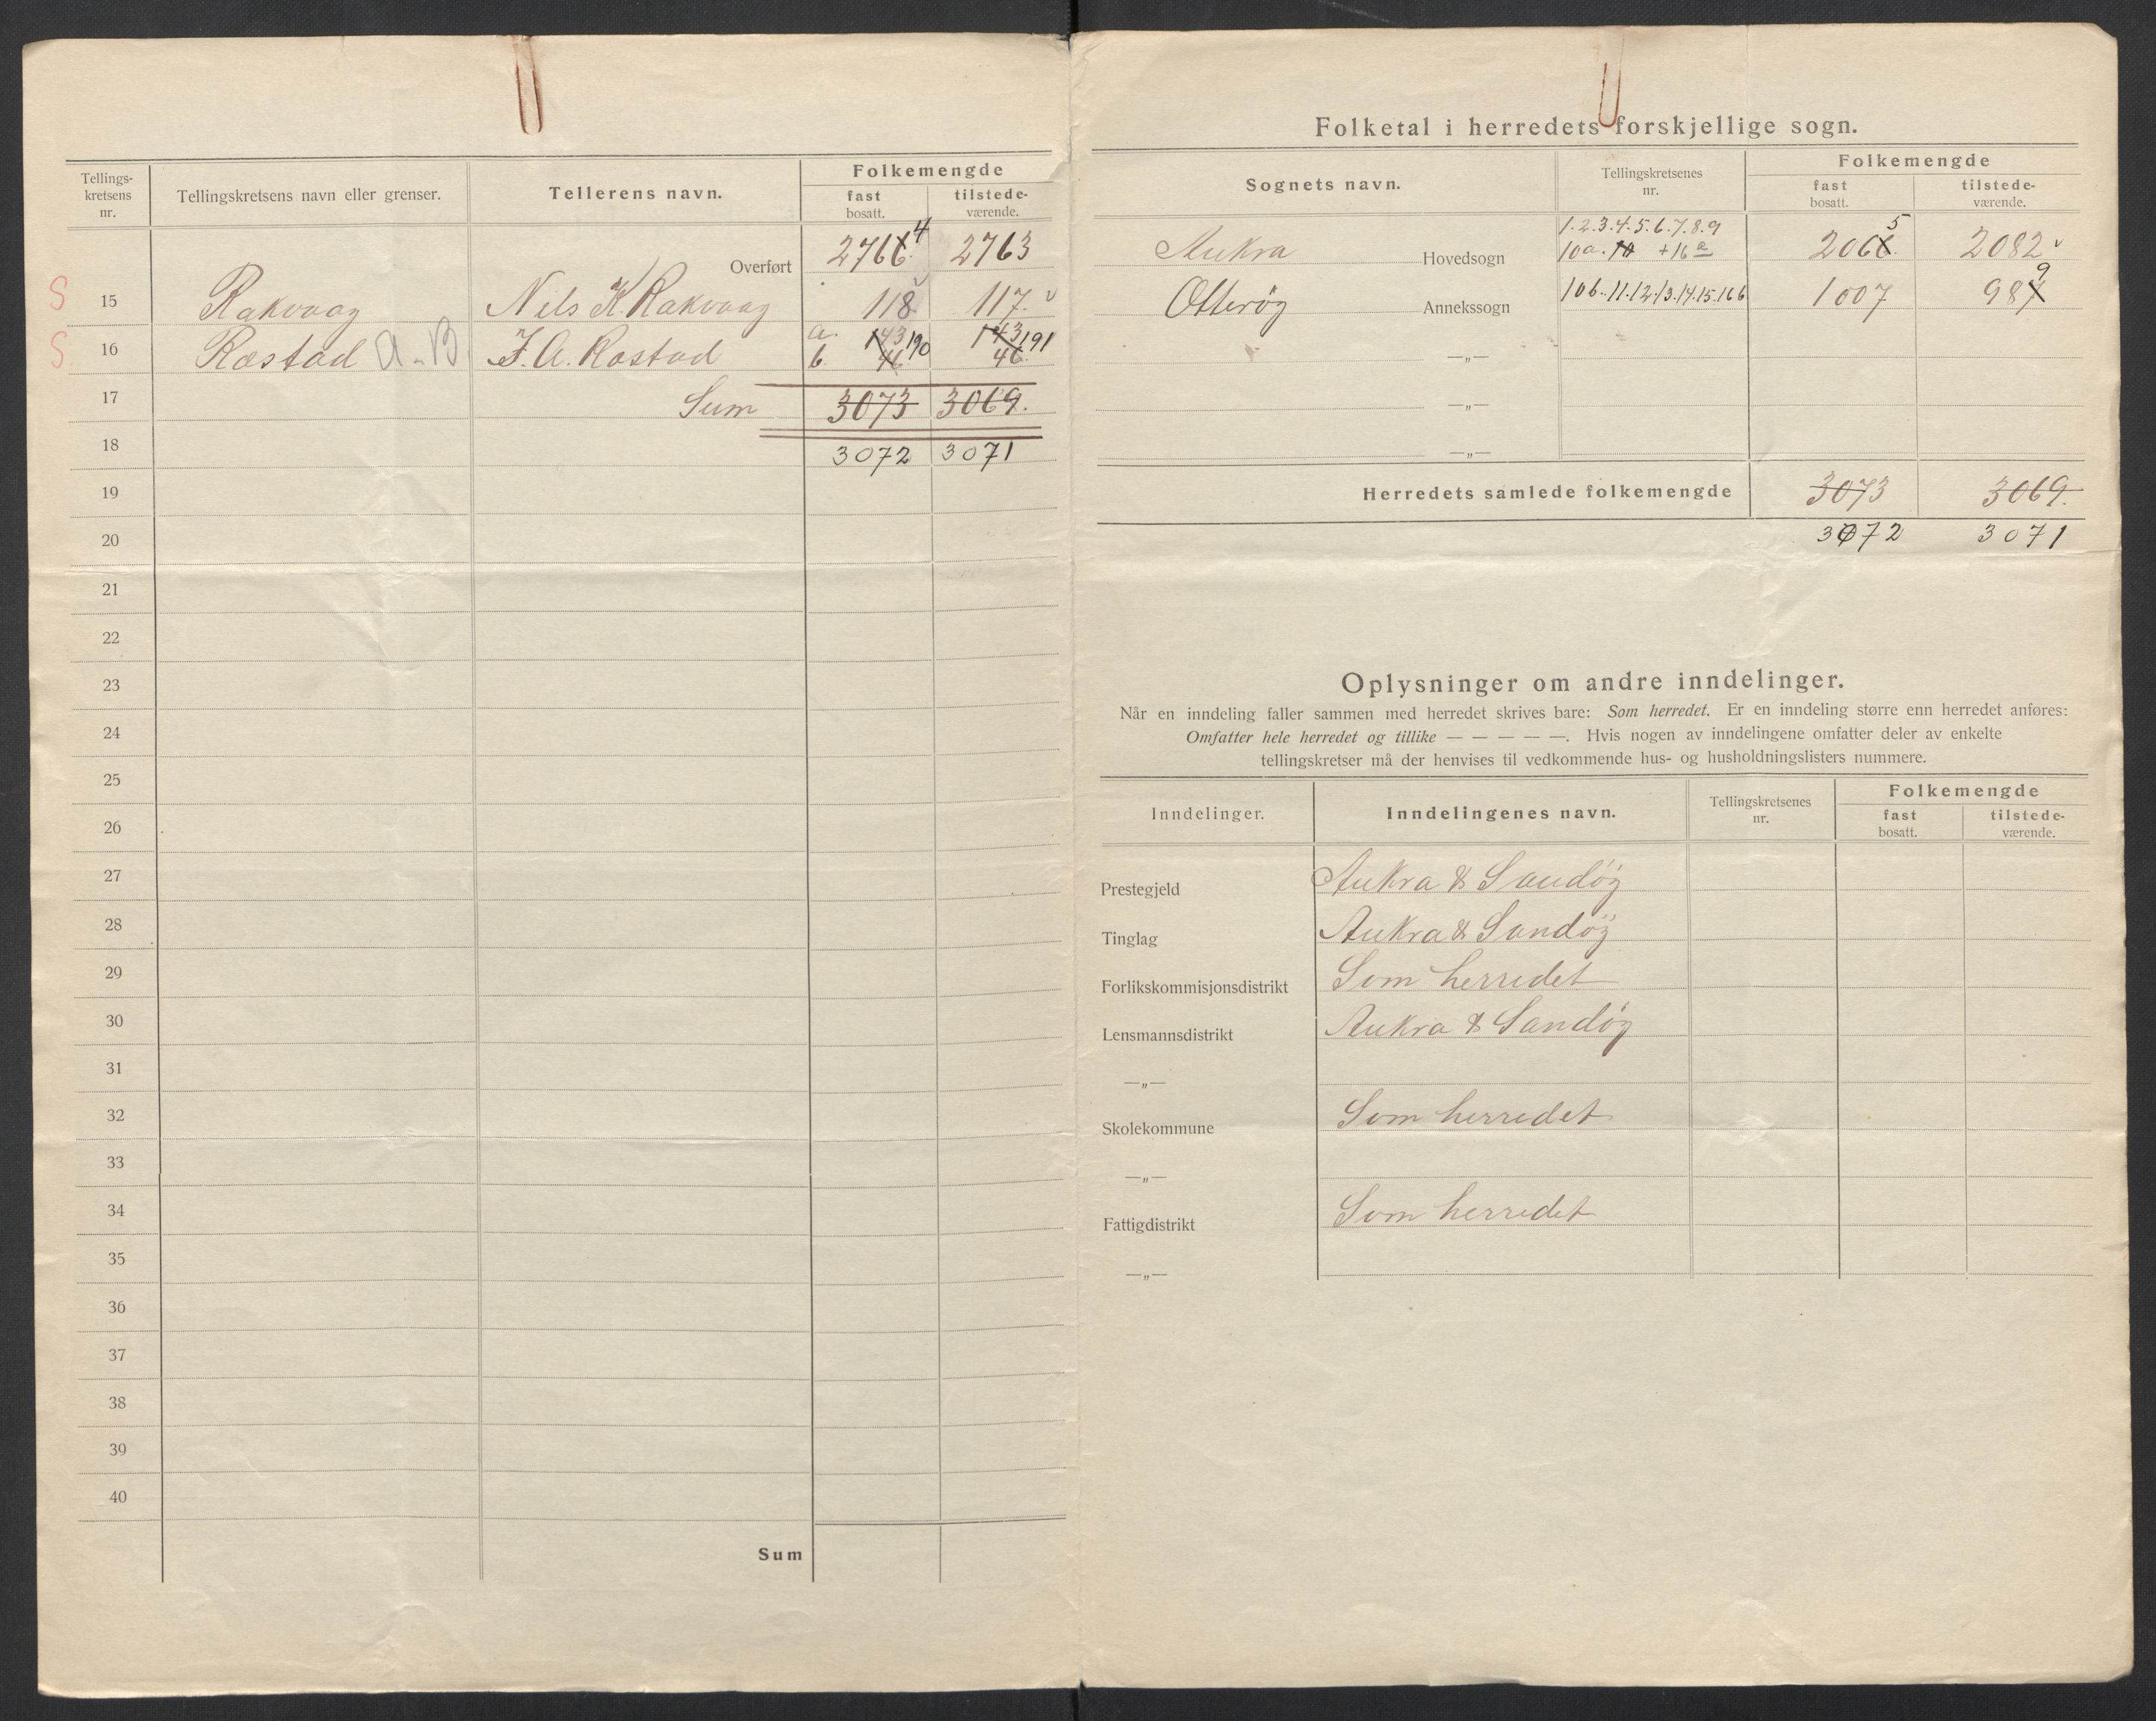 Tellings-
kretsens
nr.
Tellingskretsens navn eller grenser.
Tellerens navn.
Folkemengde
fast
bosatt.
tilstede-
værende.
Overført 2766 4 2763
S 15 Rakvaag Nils K. Rakvaag 118 117
S. 16 Rastad A-B J. A. Rastad a. 143 190 143 191
b. 46 46.
17 Sum 3073 3069.
18 3072 3071
19
20
21
22
23
24
25
26
27
28
29
30
31
32
33
34
35
36
37
38
39
40
Sum
Folketal i herredets forskjellige sogn.
Sognets navn.
Tellingskretsenes
nr.
Folkemengde
fast
bosatt.
tilstede-
værende.
1.2.3.4.5.6.7.8.9 5
Aukra Hovedsogn 10a. + 16 a 2066. 2082 v
Otterøy Annekssogn 10b.11.12.13.14.15.16b 1007 987 9
—„—
—„—
—„—
Herredets samlede folkemengde 3073 3069.
3072 3071
Oplysninger om andre inndelinger.
Når en inndeling faller sammen med herredet skrives bare: Som herredet. Er en inndeling større enn herredet anføres:
Omfatter hele herredet og tillike — — — — —. Hvis nogen av inndelingene omfatter deler av enkelte
tellingskretser må der henvises til vedkommende hus- og husholdningslisters nummere.
Inndelinger.
Inndelingenes navn.
Tellingskretsenes
nr.
Folkemengde
fast
bosatt.
tilstede-
værende.
Prestegjeld Aukra & Sandøy
Tinglag Aukra & Sandøy
Forlikskommisjonsdistrikt Som herredet
Lensmannsdistrikt Aukra & Sandøy
—„—
Skolekommune Som herredet
—„—
Fattigdistrikt Som herredet
—„—